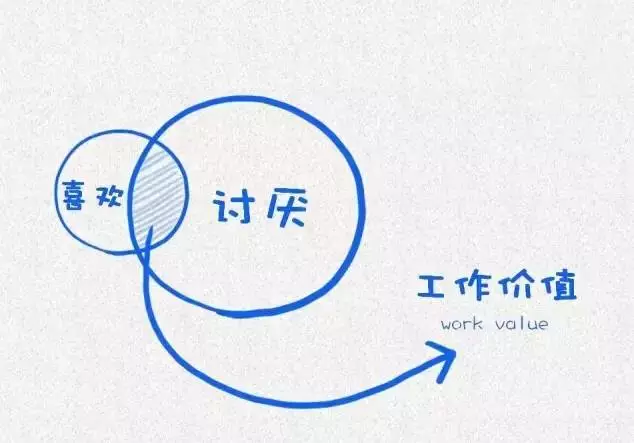 喜欢
讨厌
工作价值
work value